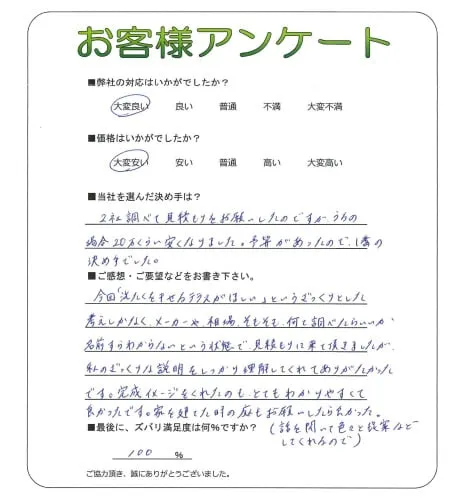 お客様アンケート
■弊社の対応はいかがでしたか？
大変良い 良い 普通 不満 大変不満
■価格はいかがでしたか？
大変安い 安い 普通 高い 大変高い
■当社を選んだ決め手は？
2社調べて見積もりをお願いしたのですが、うちの
場合20万くらい安くなりました。予算があったので、1番の
決め手でした。
■ご感想・ご要望などをお書き下さい。
今回「洗たくをほせるテラスがほしい」というざっくりとした
考えしかなく、メーカーや、相場、そもそも、何て調べたらいいか
名前すらわからないという状態で、見積もりに来て頂きましたが、
私のざっくりな説明をしっかり理解してくれてありがたかった
です。完成イメージをくれたのも、とてもわかりやすくて
良かったです。家を建てた時の庭もお願いしたら良かった。
■最後に、ズバリ満足度は何％ですか？
(話を聞いて色々と提案など
してくれるので)
100 ％
ご協力頂き、誠にありがとうございました。